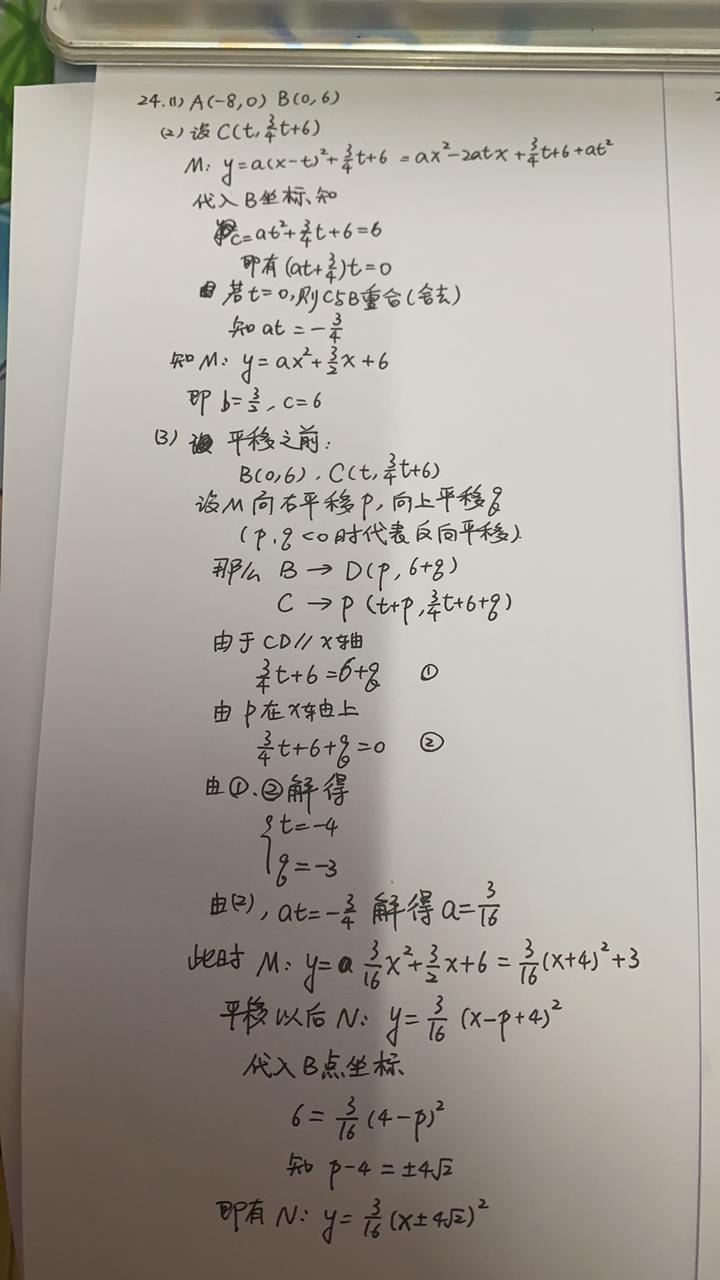 24.(1) A(-8,0) B(0,6)
(2) 设 C(t,¾t+6)
M: y=a(x-t)²+¾t+6 = ax²-2atx+¾t+6+at²
代入B坐标,知
c=at²+¾t+6=6
即有(at+¾)t=0
若t=0,则C与B重合(舍去)
知 at=-¾
知M: y=ax²+3/2x+6
即 b=3/2, c=6
(3) 平移之前:
B(0,6), C(t,¾t+6)
设M向右平移p,向上平移q
(p,q<0时代表反向平移)
那么 B → D(p,6+q)
C → P(t+p,¾t+6+q)
由于CD//x轴
¾t+6=6+q ①
由P在x轴上
¾t+6+q=0 ②
由①.②解得
{t=-4
q=-3
由(2), at=-¾ 解得a=3/16
此时 M: y=3/16x²+3/2x+6=3/16(x+4)²+3
平移以后N: y=3/16(x-p+4)²
代入B点坐标
6=3/16(4-p)²
知 p-4=±4√2
即有 N: y=3/16(x±4√2)²